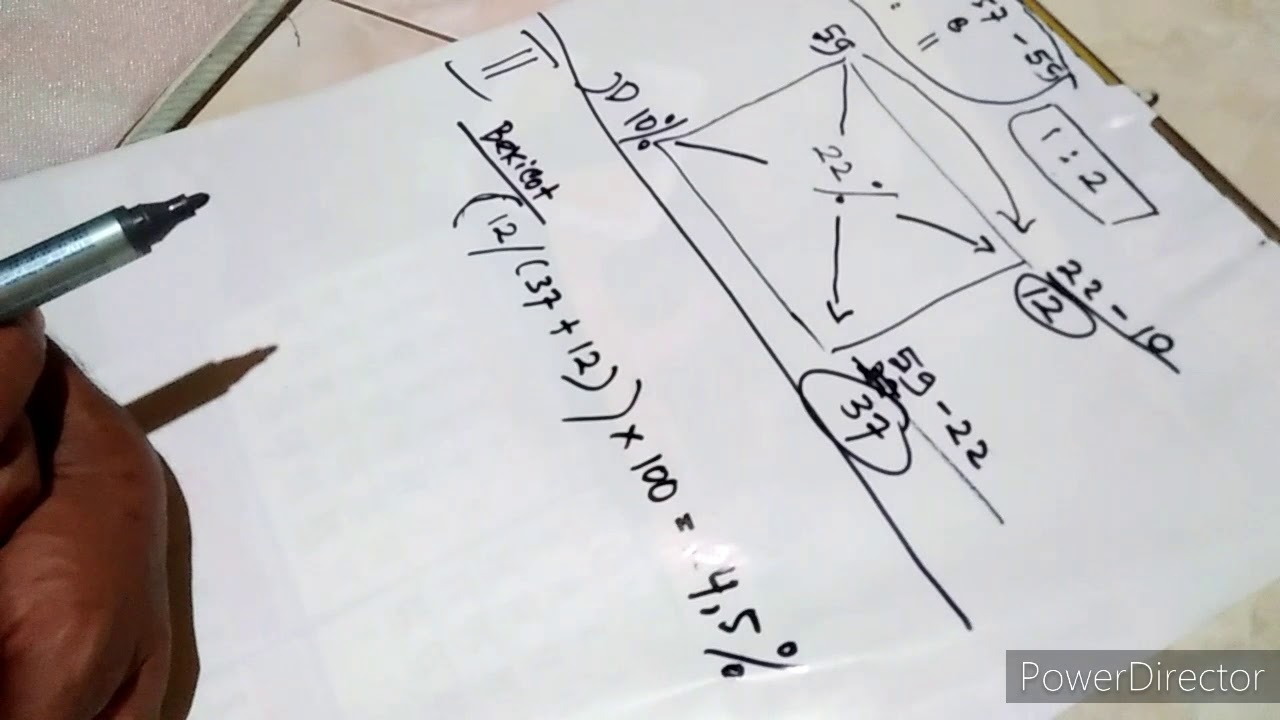 59
57 - 59
1 : 2
JD 10%
22%
22 - 10
12
59 - 22
37
II
Bexicot
(12/(37 + 12)) × 100 = 4,5%
PowerDirector